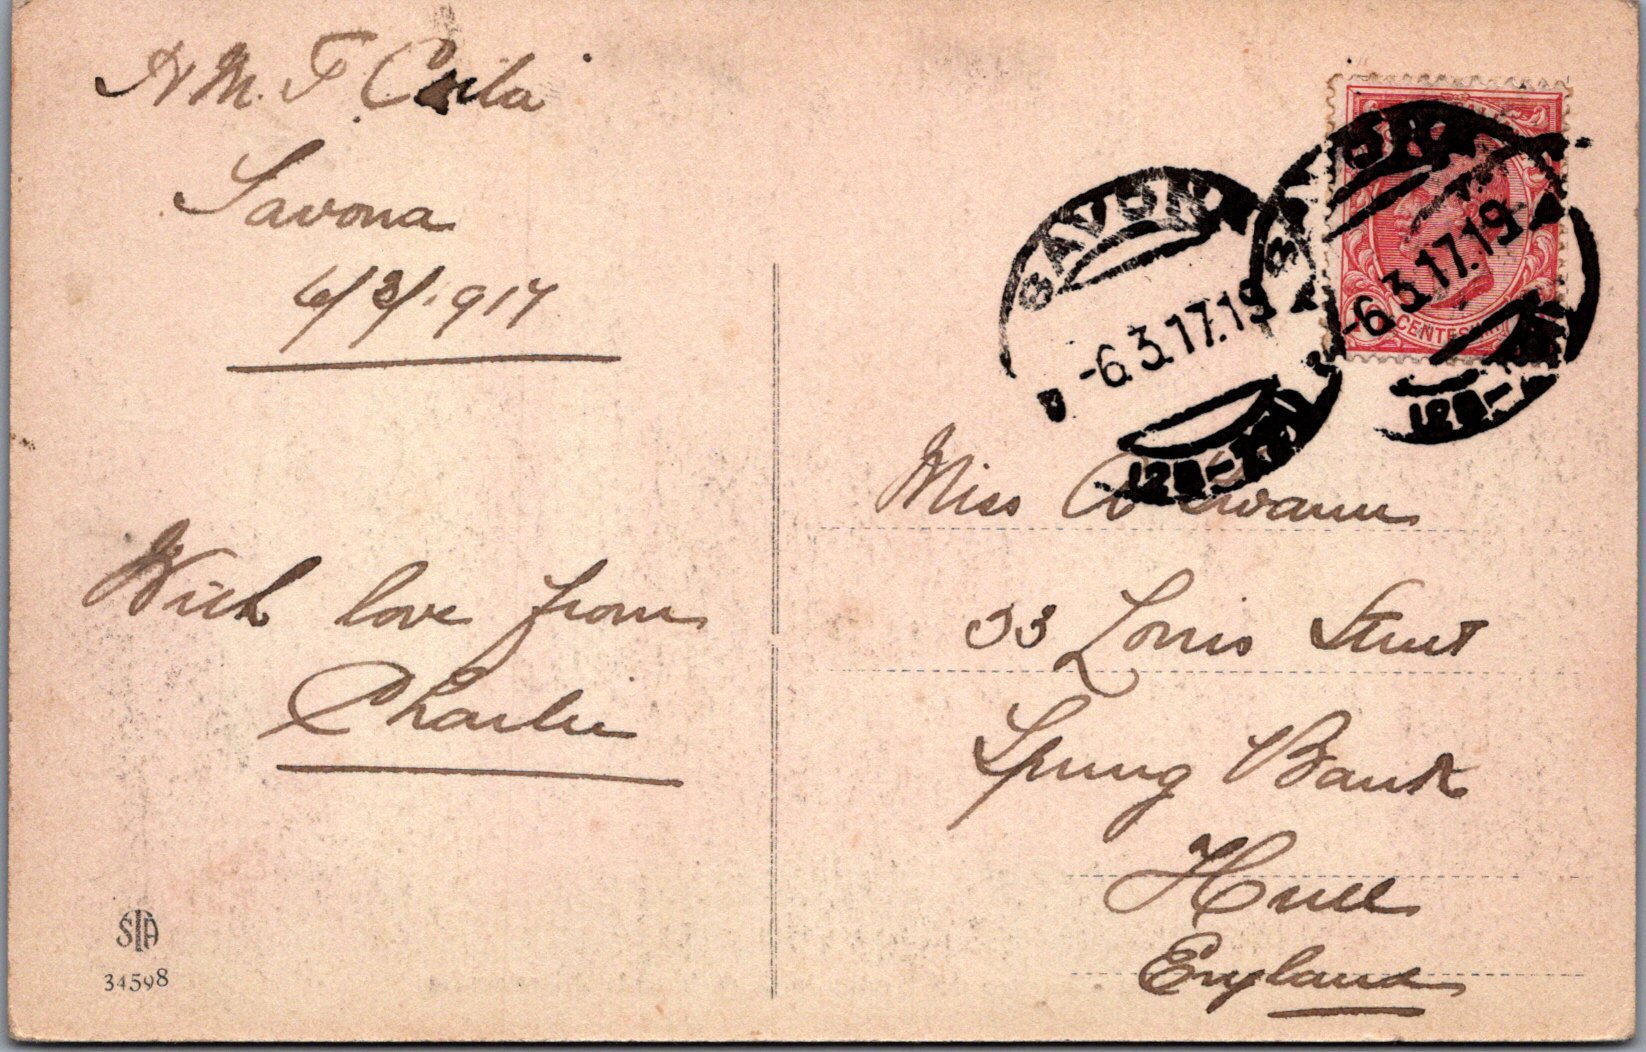 H M. T
Savona
6/3/1917
With love from
Charlie
STA
34598
SAVONA
-6.3.17.19
SAVONA
-6.3.17.19
CENTESIMI
Miss Swann
33 Louis Street
Spring Bank
Hull
England